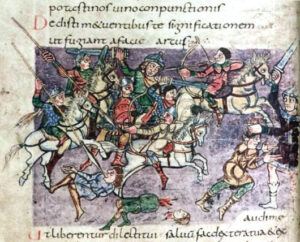 potastinos uino conpunctionis
Dedisti m&uentibus te significationem
ut fugiant a facie arcus
audi me
Ut liberentur dilecti tui saluum fac dextera tua & ex